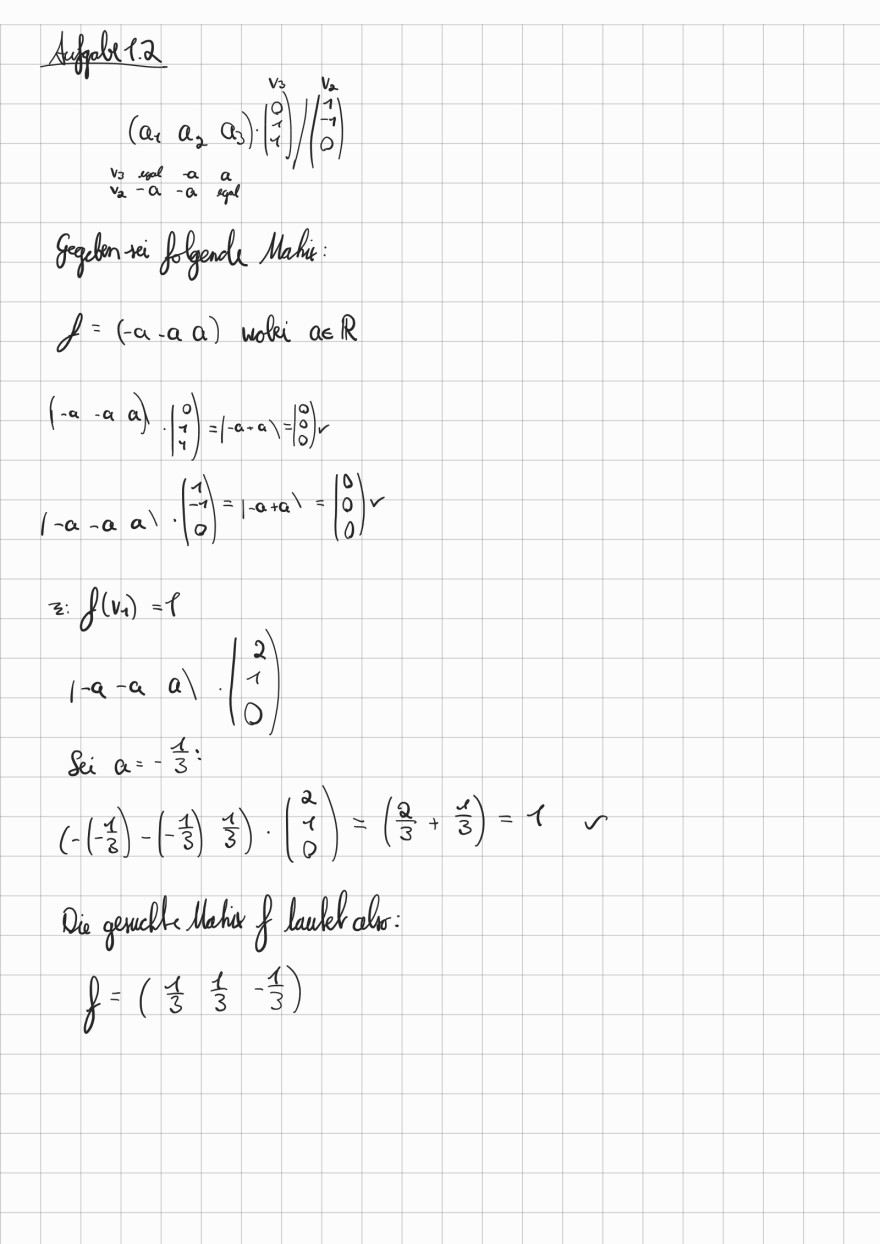 Aufgabe 1.2
v3 v2
(a1 a2 a3) · (0 1 1) / (1 -1 0)
v3 egal -a a
v2 -a -a egal
Gegeben sei folgende Matrix:
f = (-a -a a) wobei a∈ℝ
(-a -a a) · (0 1 1) = (-a+a) = (0 0 0) ✓
(-a -a a) · (1 -1 0) = (-a+a) = (0 0 0) ✓
z: f(v1) = 1
(-a -a a) · (2 1 0)
Sei a = - 1/3:
(-(-1/3) -(-1/3) 1/3) · (2 1 0) = (2/3 + 1/3) = 1 ✓
Die gesuchte Matrix f lautet also:
f = (1/3 1/3 -1/3)